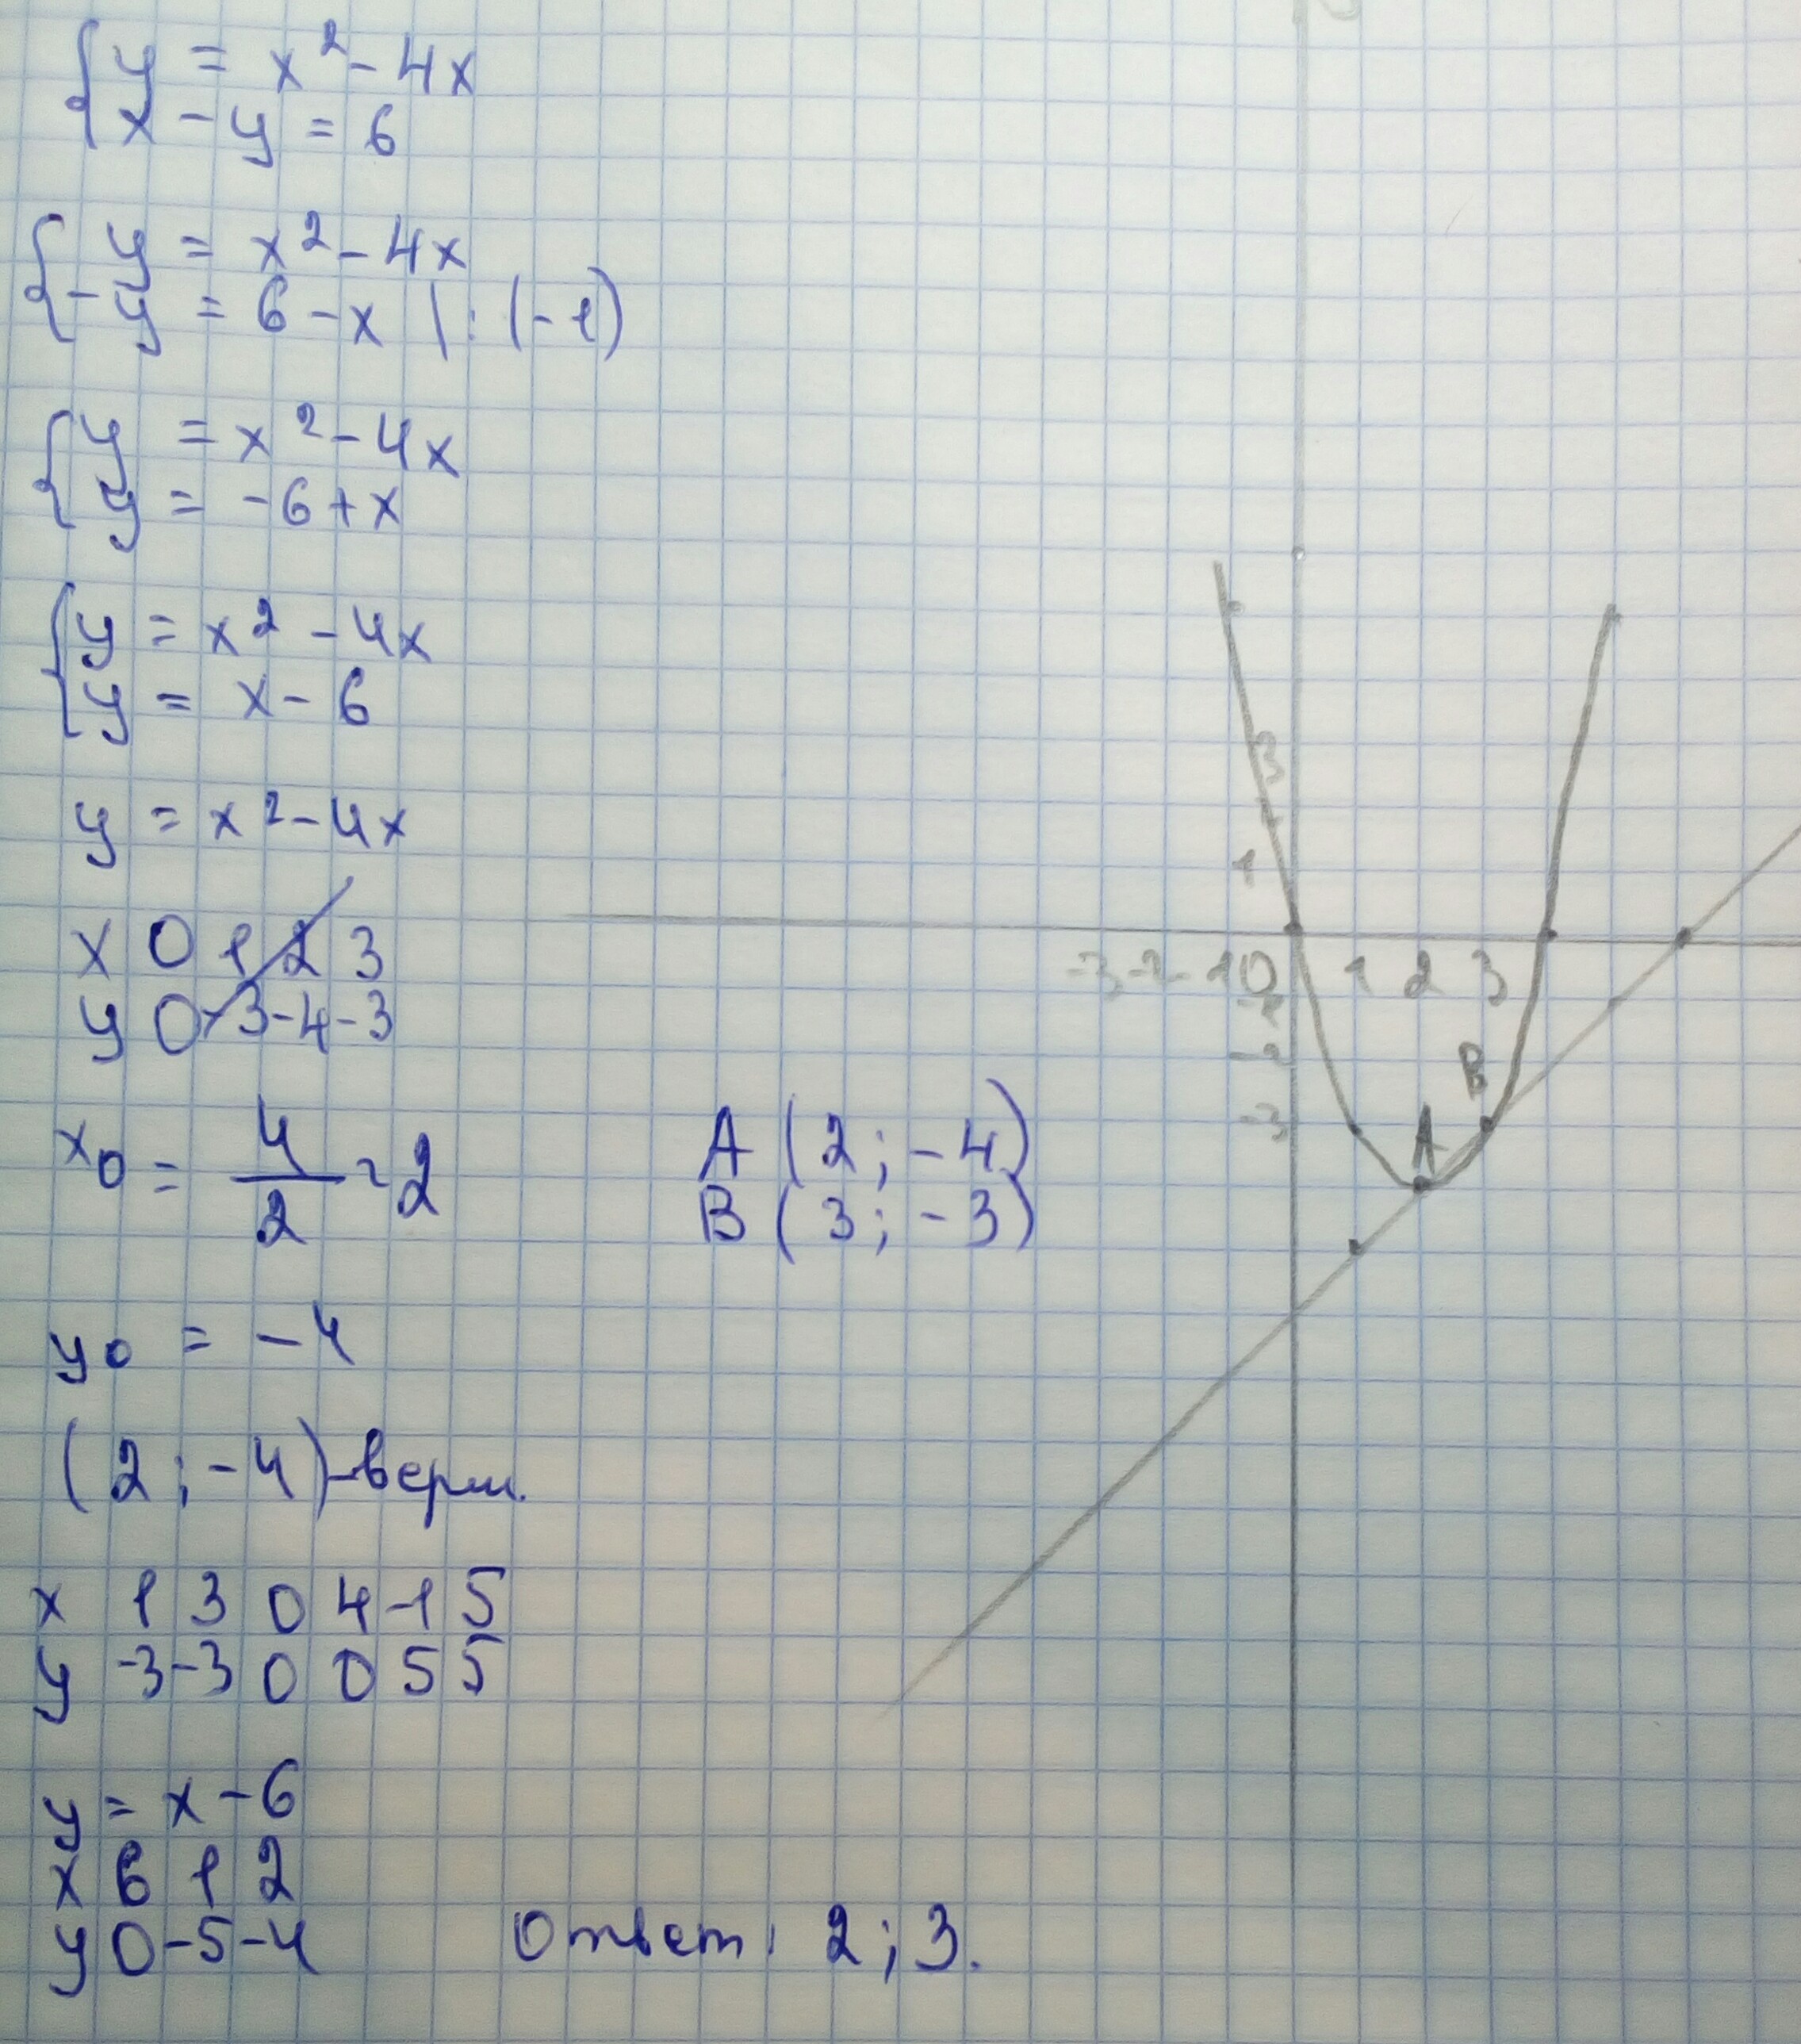 y = x² - 4x
x - y = 6
y = x² - 4x
-y = 6 - x | : (-1)
y = x² - 4x
y = -6 + x
y = x² - 4x
y = x - 6
y = x² - 4x
x 0 1 2 3
y 0 -3 -4 -3
x₀ = 4/2 = 2
y₀ = -4
(2; -4) - верш.
x 1 3 0 4 -1 5
y -3 -3 0 0 5 5
y = x - 6
x 6 1 2
y 0 -5 -4
A (2; -4)
B (3; -3)
Ответ: 2; 3.
3
1
-3 -2 -1 0 1 2 3
-3
B
A